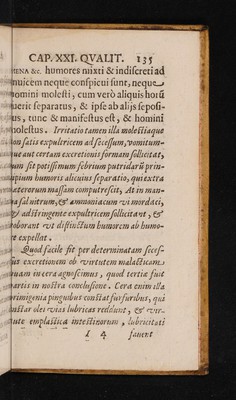 CAP. XXI. QVALIT. 135
HENA &c. humores mixti & indiscreti ad
inuicem neque conspicui sunt, neque
homini molesti, cum verò aliquis horũ
fuerit separatus, & ipse ab alijs seposi-
tus, tunc & manifestus est, & homini
molestus. Irritatio tamen illa molestiaque
non satis expultricem ad secessum, vomitum-
que aut certam excretionis formam sollicitat,
cum sit potissimum febrium putridarũ prin-
cipium humoris alicuius separatio, qui extra
ceterorum massam computrescit, At in man-
na sal nitrum, & ammoniacum vi mordaci,
& adstringente expultricem sollicitant, &
roborant vt distinctum humorem ab humo-
re expellat.
Quod facile fit per determinatam
excretionem ob virtutem malacticam
quam in cera agnoscimus, quod tertia fuit
partis in nostra conclusione. Cera enim illa
primigenia pinguibus constat furfuribus, qui
instar olei vias lubricas reddunt, & vir-
tute emplastica intestinorum, lubricitati
I 4 fauent